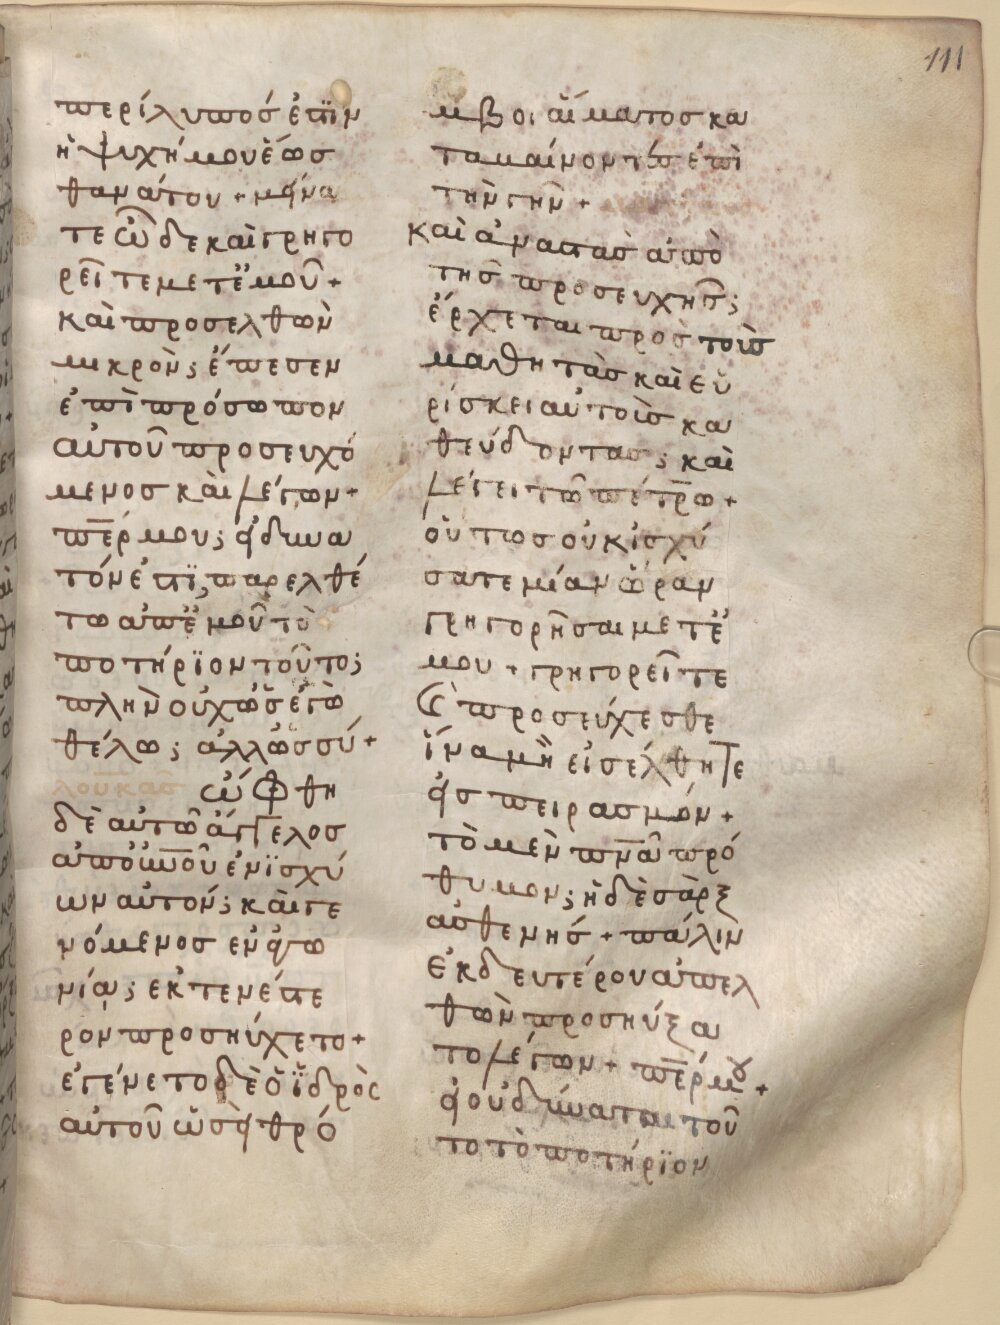 111
περίλυπόσ ἐστϊν
ἡ ψυχήμουἕωσ
θανάτου + μείνα
τε ὧδεκαὶγρηγο
ρεῖτεμετἐμοῦ +
καὶπροσελθὼν
μικρὸν; ἔπεσεν
ἐπὶπρόσωπον
αὐτοῦ προσευχό
μενοσ καὶ λέγων +
πε̅ρ μου; εἰδυνα
τόνἐστϊ, παρελθέ
τω ἀπἐμοῦ τὸ
ποτήρϊοντοῦτο;
πλὴνοὐχὡσἐγὼ
θέλω; ἀλλὡσσύ +
ὤφθη
δὲ αὐτῶἄγγελοσ
ἀπὸο̅υ̅ν̅οῦ ἐνϊσχύ
ων αὐτόν; καὶγε
νόμενοσ ενἀγω
νία; ἐκτενέστε
ρονπροσηύχετο +
ἐγένετοδὲὁἵδρὸς
αὐτοῦ ὡσεὶθρό
μβοι αἵματοσ κα
ταμαίνοντεσ ἐπὶ
τὴνγῆν +
καὶἀναστασ ἀπὸ
τῆσ προσευχῆσ;
ἔρχεται πρὸσ τοὺσ
μαθητὰσ καὶεὑ
ρίσκει αὐτοὺσ κα
θεύδοντασ; καὶ
λέγει τῶ πέτρω +
οὕτωσ οὐκἰσχύ
σατε μίαν ὥραν
γρηγορῆσαι μετἐ
μου + γρηγορεῖτε
Ϛ̀ προσεύχεσθε
ἵναμὴ εἰσέλθητε
εἰσ πειρασμόν +
τὸ μὲν πν̅α̅ πρό
θυμον; ἡδὲσὰρξ
ἀσθενήσ + πάλιν
ἐκδευτέρουἀπελ
θὼν προσηύξα
το λέγων + πε̅ρ μȣ +
εἰοὐδύναται τοῦ
το τὸ ποτήρϊον